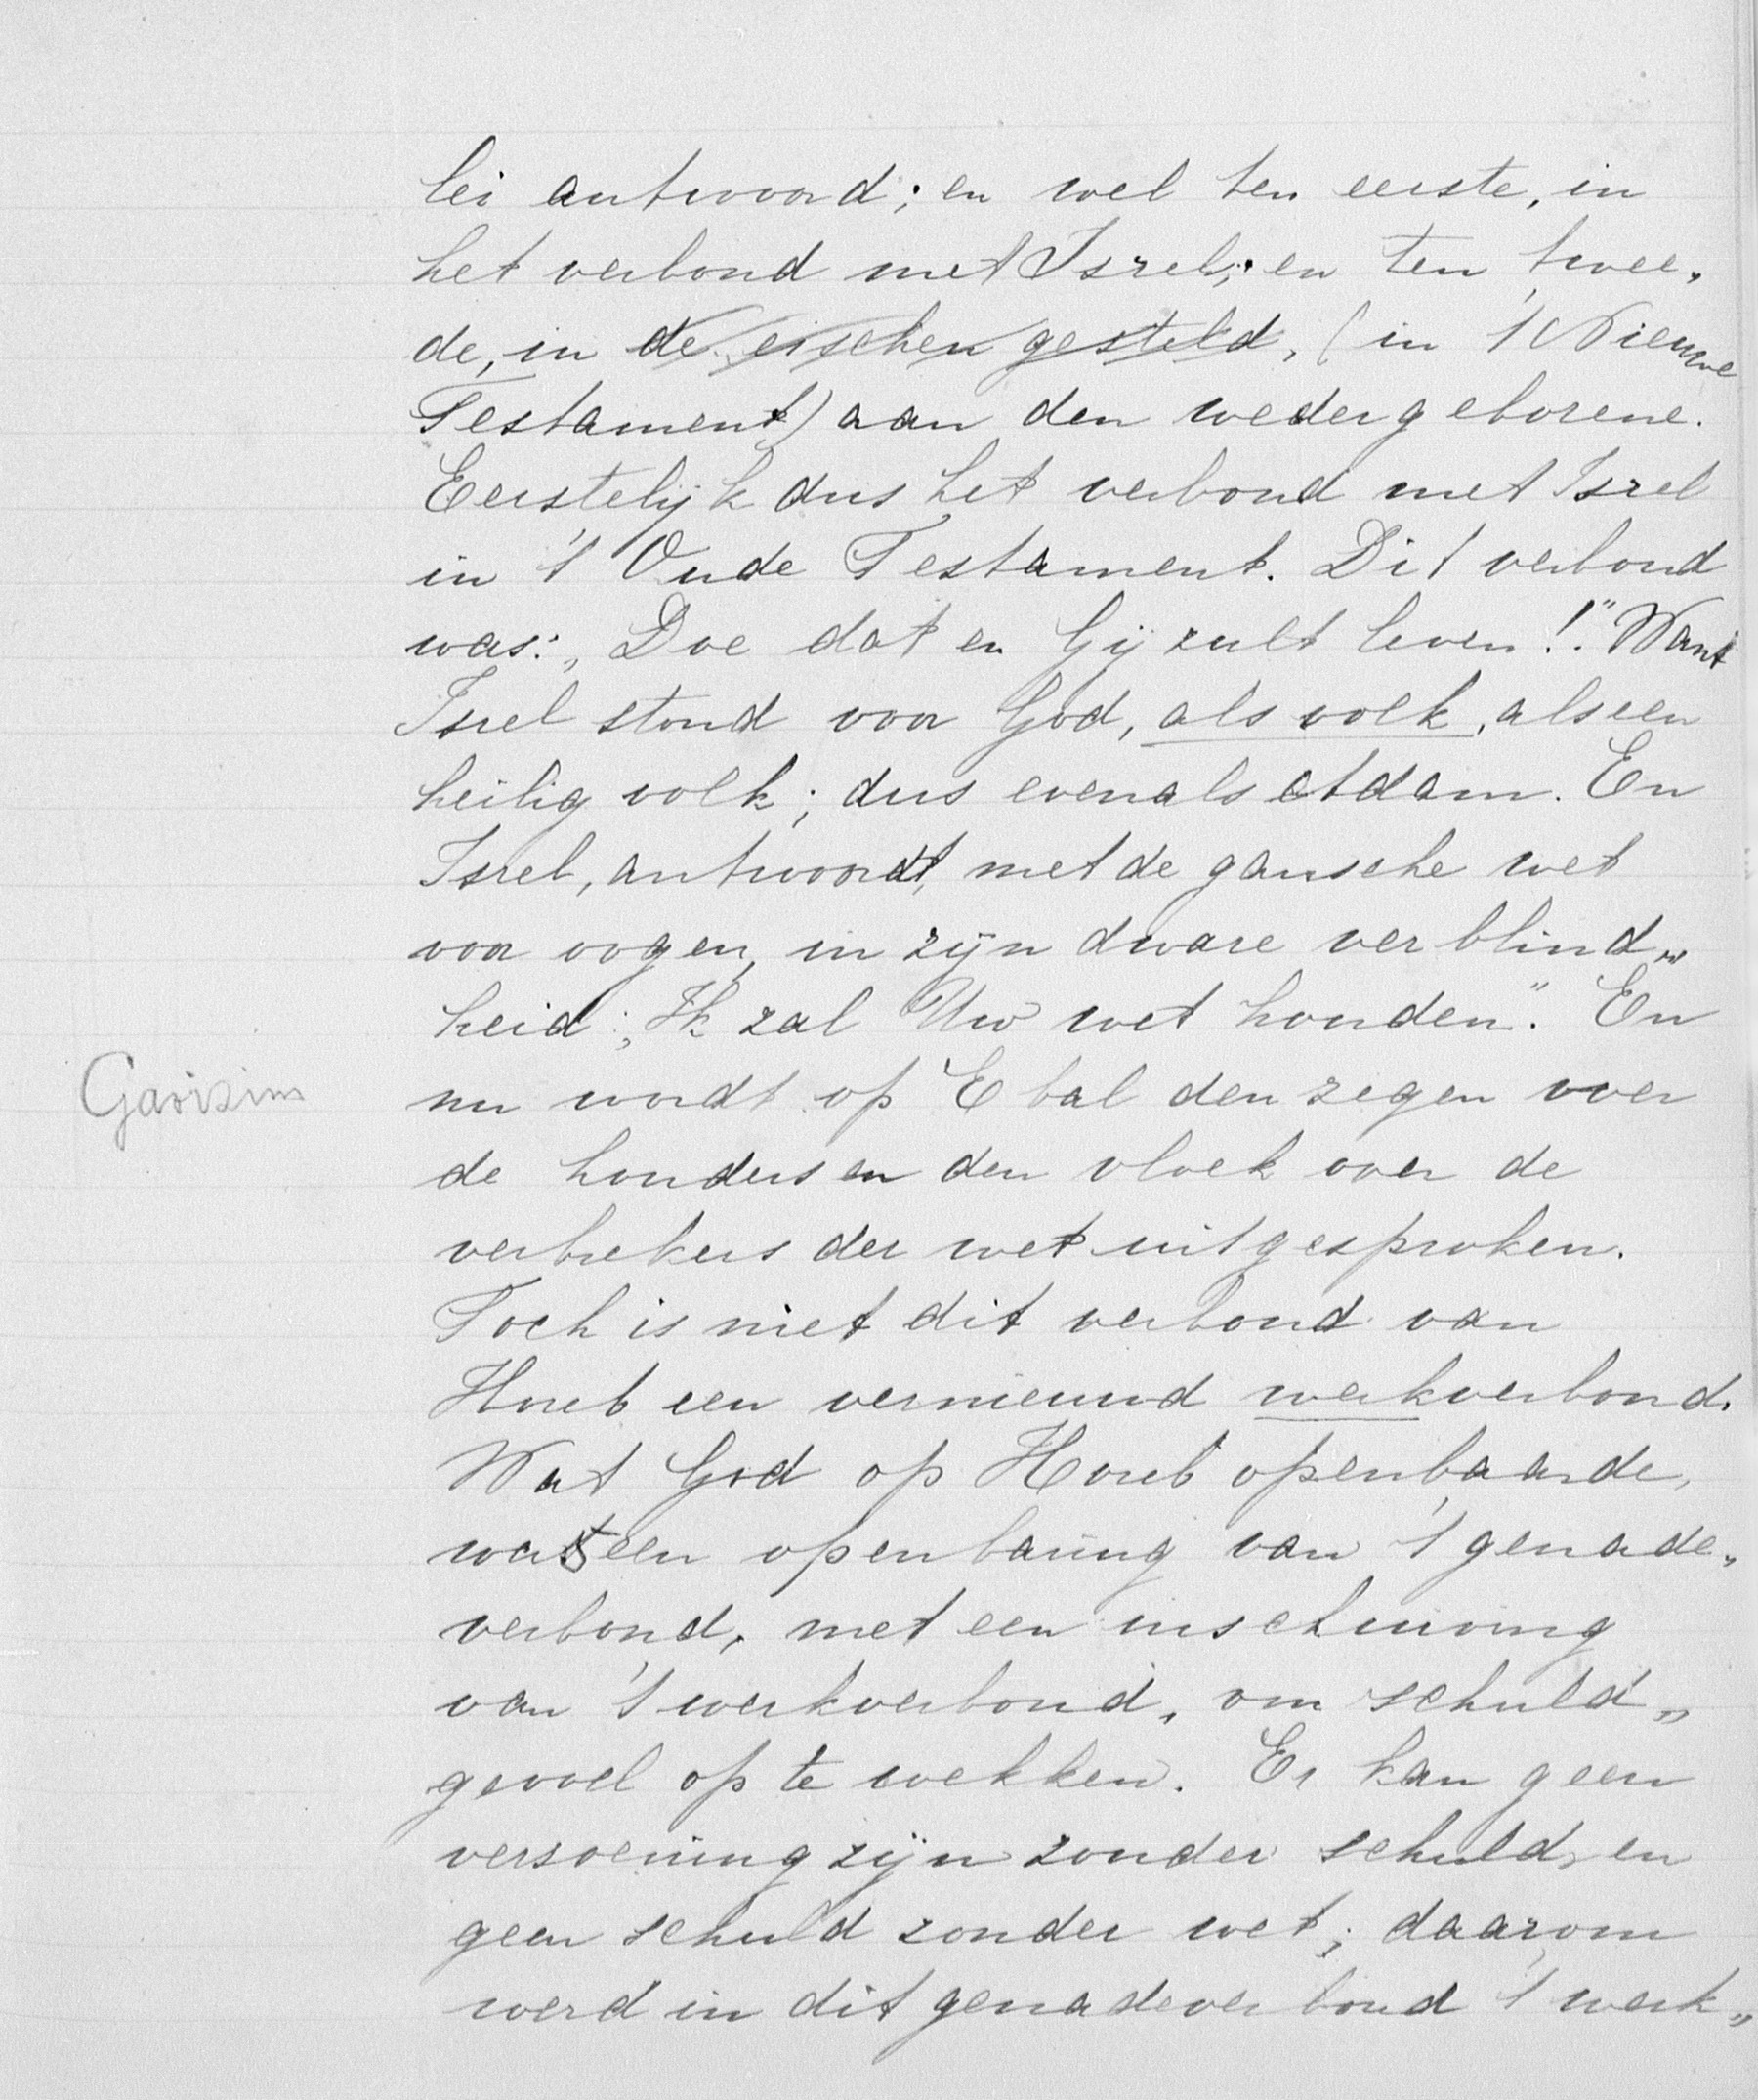 lei antwoord; en wel ten eerste, in
het verbond met Isrel; en ten twee„
de, in de eischen gesteld, (in 't Nieuwe
Testament) aan den wedergeborene.
Eerstelijk dus het verbond met Isrel
in 't Oude Testament. Dit verbond
was: „Doe dat en Gij zult leven!" Want
Isrel stond voor God, als volk, als een
heilig volk; dus evenals Adam. En
Isrel, antwoordt, met de gansche wet
voor oogen, in zijn dware verblind„
heid: „Ik zal Uw wet houden". En
Garizim
nu wordt op Ebal den zegen over
de houders en den vloek over de
verbrekers der wet uitgesproken.
Toch is niet dit verbond van
Horeb een vernieuwd werkverbond.
Wat God op Horeb openbaarde,
was een openbaring van 't genade„
verbond, met een inschuiving
van 't werkverbond, om schuld„
gevoel op te wekken. Er kan geen
versoening zijn zonder schuld, en
geen schuld zonder wet; daarom
werd in dit genadeverbond 't werk„